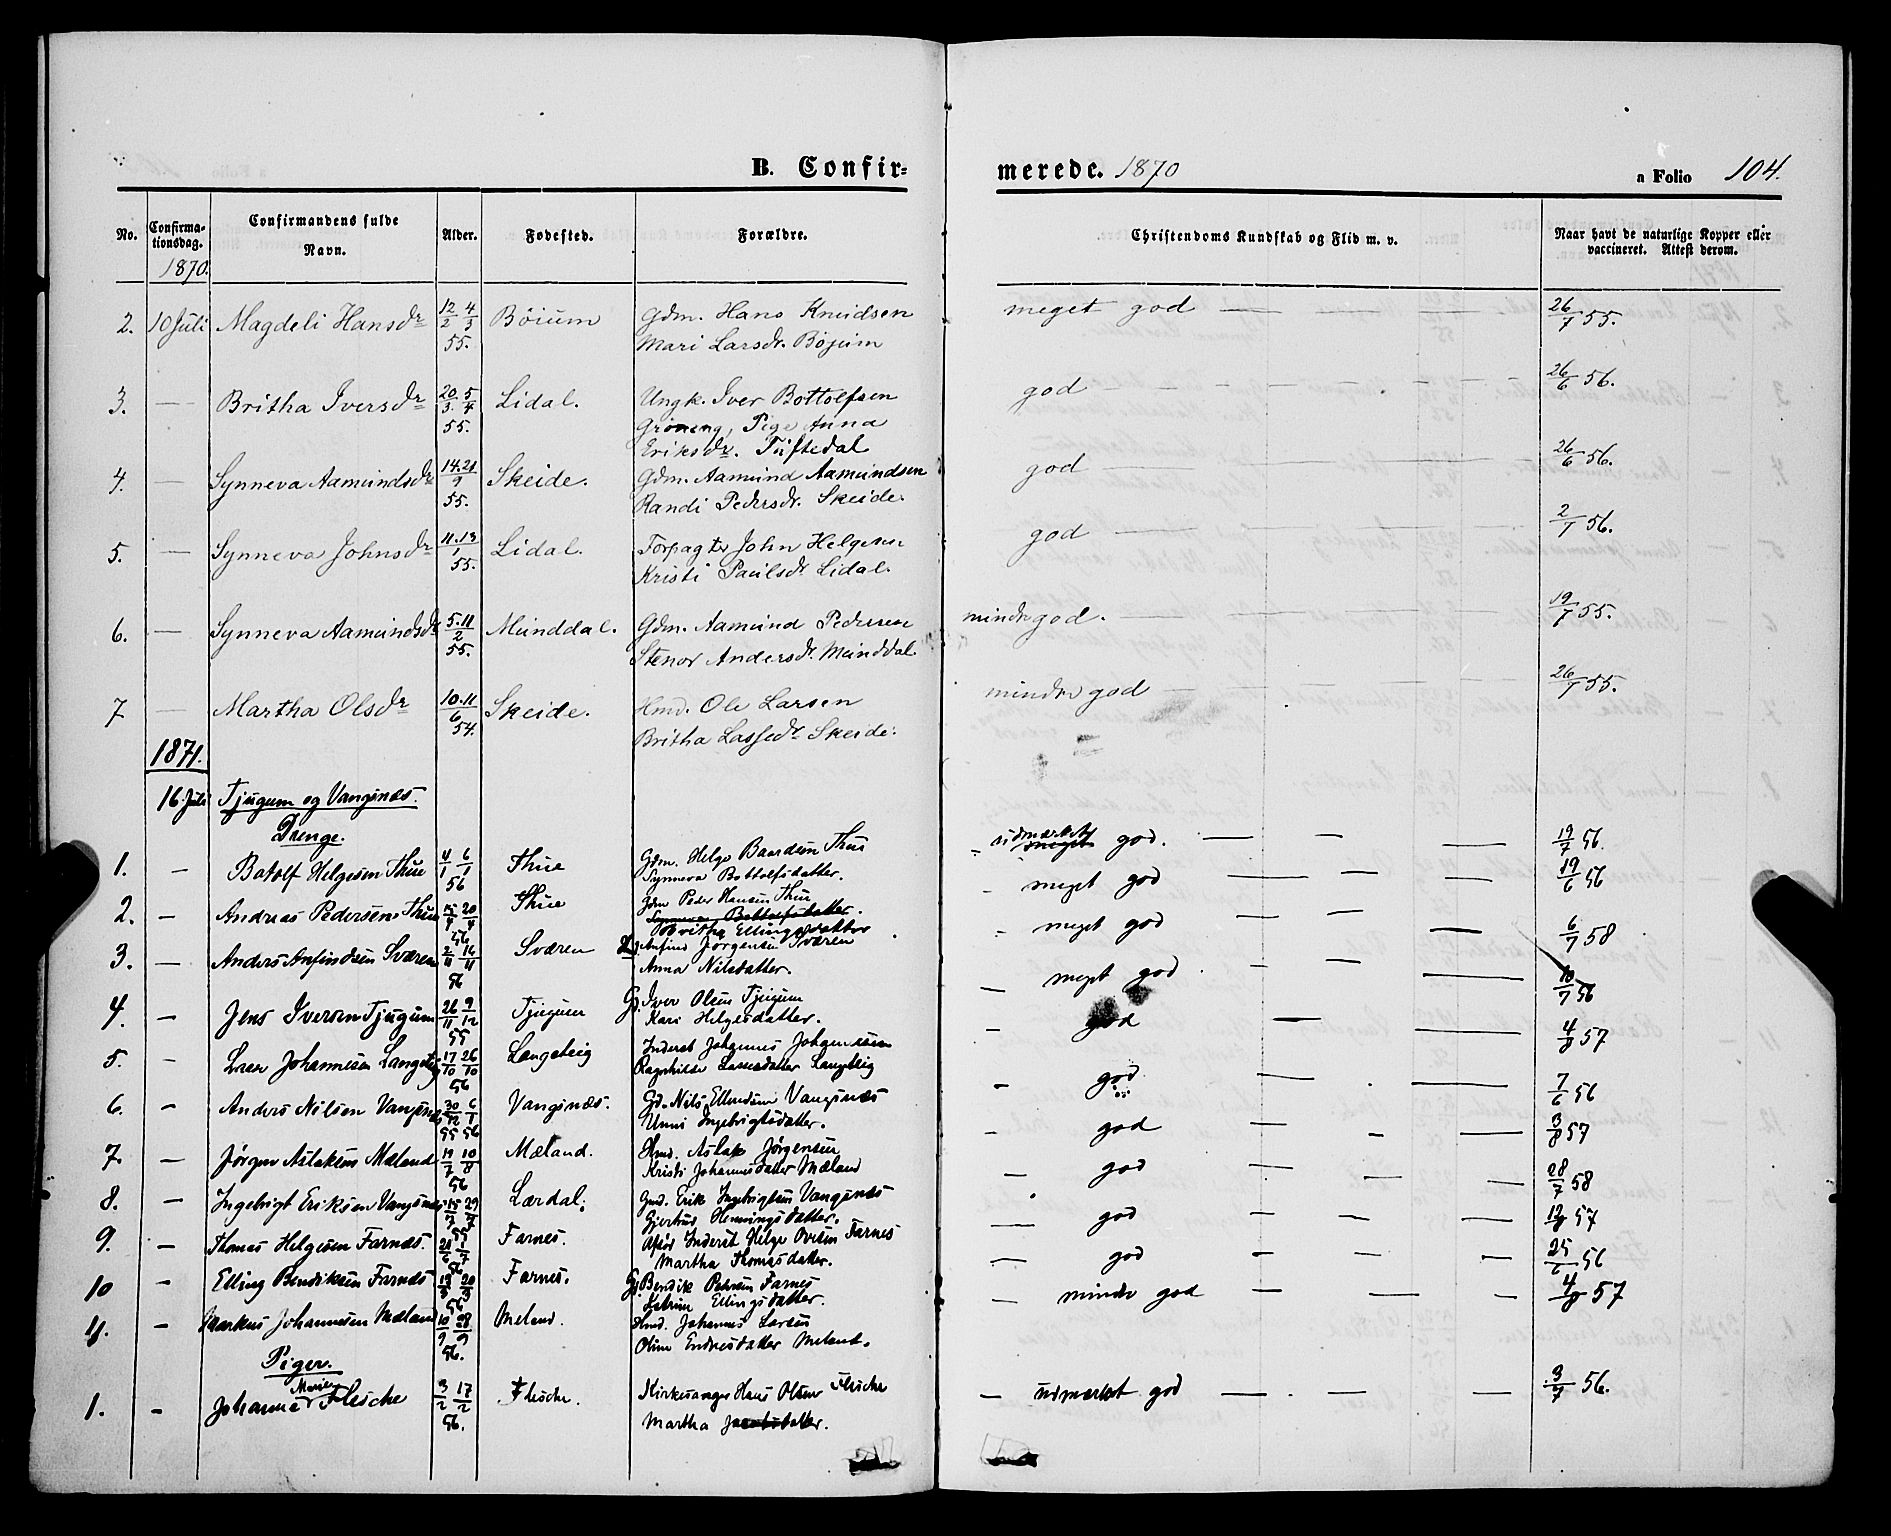 B. Confir-
merede. 1870
a Folio 104.
No.
Confirma-
tionsdag.
1870.
Confirmandens fulde
Navn.
Alder.
Fødested.
Forældre.
Christendoms Kundskab og Flid m. v.
Naar havt de naturlige Kopper eller
vaccineret. Attest derom.
2. 10 Juli Magdeli Hansdr 12/2 4/3 Böium Gdm. Hans Knudsen meget god — — — 26/7 55.
55. Mari Larsdr. Böjum
3. — Britha Iversdr 20/3. 5/4 Lidal. Ungk. Iver Bottolfsen god — — — 26/6 56.
55. Gröneng, Pige Anna
Eriksdr. Tuftedal
4. — Synneva Aamundsdr 14.21/9 Skeide. Gdm. Aamund Aamundsen god — — — 26/6 56.
55. Randi Pedersdr. Skeide.
5. — Synneva Johnsdr 11.13/1 Lidal. Forpagter John Helgesen god — — — 2/7 56.
55. Kristi Paulsdr Lidal.
6. — Synneva Aamundsdr 5.11/2 Munddal. Gdm. Aamund Pedersen mindre god. — — — 19/7 55.
55. Stenor Andersdr Munddal.
7 — Martha Olsdr 10.11/6 Skeide. Hmd. Ole Larsen mindre god — — — 26/7 55.
54. Britha Lassedr Skeide.
1871.
16. Juli Tjugum og Vangsnæs.
Drenge.
1. — Botolf Helgesen Thue 4/1 6/1 Thue Gdm. Helge Baardsen Thue udmærket god. — — — 19/7 56.
56 Synneva Bottolfsdatter.
2. — Andreas Pedersen Thue 15/4 20/4 Thue Gdm Peder Hansen Thue meget god — — — 19/6 56
56 Synneva Bottolfsdatter.
Britha Ellingsdatter
3. — Anders Anfindsen Sværen 2/11 16/11 Sværen Anfind Jørgensen Sværen meget god — 6/7 58
56 Anna Nilsdatter.
4. — Jens Iversen Tjugum 26/11 9/12 Tjugum Gd. Iver Olsen Tjugum meget god — — — 10/7 56
55 Kari Helgesdatter.
5. — Lasse Johannesen Langeteig 17/10 26/10 Langeteig Inderst Johannes Johannesen god — — 4/8 57
56 Ragnhilde Lassesdatter Langteig
6. — Anders Nilsen Vangsnæs 30/12 6/1 Vangsnæs. Gd. Nils Ellendsen Vangsnæs god — — 7/6 56
55 56 Unni Ingebrigtsdatter.
7. — Jørgen Aslaksen Mæland 19/7 10/8 Mæland. Hmd. Aslak Jørgensen god — — — 3/8 57
56 Kristi Johannesdatter Mæland
8. — Ingebrigt Eriksen Vangsnæs 15/7 29/7 Lærdal. Gmd. Erik Ingebrigtsen Vangsnæs god — 28/7 58
55 Gjertrud Henningsdatter.
9. — Thomas Helgesen Farnæs. 21/6 1/7 Farnes. Inderst Helge Ovesen Farnes god — — — 12/8 57
56 Martha Thomasdatter.
10 — Elling Bendiksen Farnæs Farnes. Gd. Bendik Pehrsen Farnes god — — — 25/6 56
56 Katrine Ellingsdatter.
11. — Markus Johannesen Mæland 10/9 28/9 Meland. Hmd. Johannes Larsen mindre god — — — 4/8 57
56. Oline Endresdatter Meland.
Piger.
Marie
1. — Johanne Flesche 3/2 17/2 Flesche. Kirkesanger Hans Olsen Flesche — udmærket god — — — 3/7 56.
56. Martha Jacobsdatter.